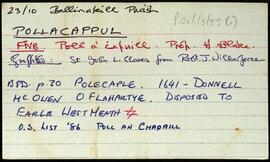 23/10 Ballinakill Parish
POLLACAPPUL
FNB. Poll a' Capuill. Prop.
Griffiths: St. John L. Clowes from Robt. J. Wilberforce
BSD. p. 30 POLECAPLE. 1641 - DONNELL
MC OWEN O FLAHARTYE. DISPOSED TO
EARLE WESTMEATH
O.S. LIST '86 POLL AN CHAPAILL